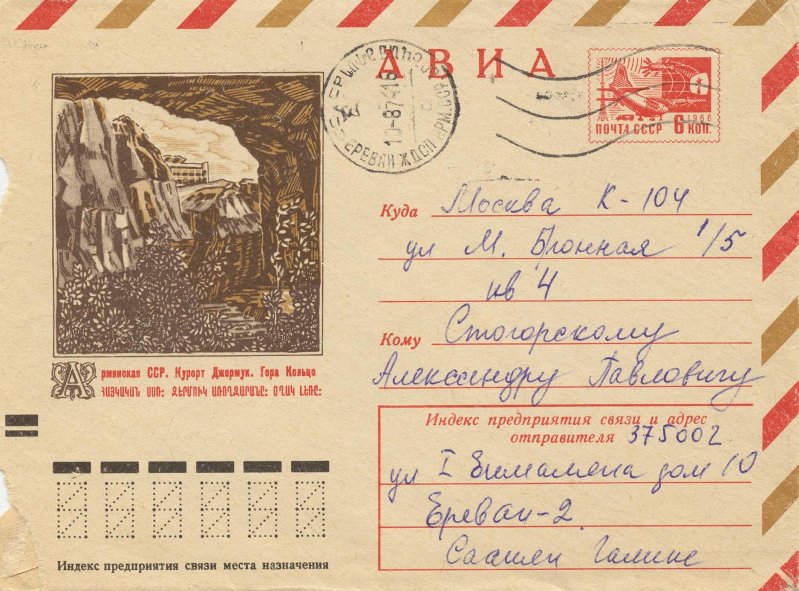 АВИА
ПОЧТА СССР 6 КОП.
1966
ЕРЕВАН ЖДСП АРМ.
Куда Москва К-104
ул М. Бронная 1/5
кв 4
Кому Стогорскому
Александру Павловичу
Армянская ССР. Курорт Джермук. Гора Кольцо
ՀԱՅԿԱԿԱՆ ՍՍՌ: ՋԵՐՄՈՒԿ ԱՌՈՂՋԱՐԱՆԸ: ՕՂԱԿ ԼԵՌԸ:
Индекс предприятия связи и адрес
отправителя 375002
ул I дом 10
Ереван-2
Галине
Индекс предприятия связи места назначения